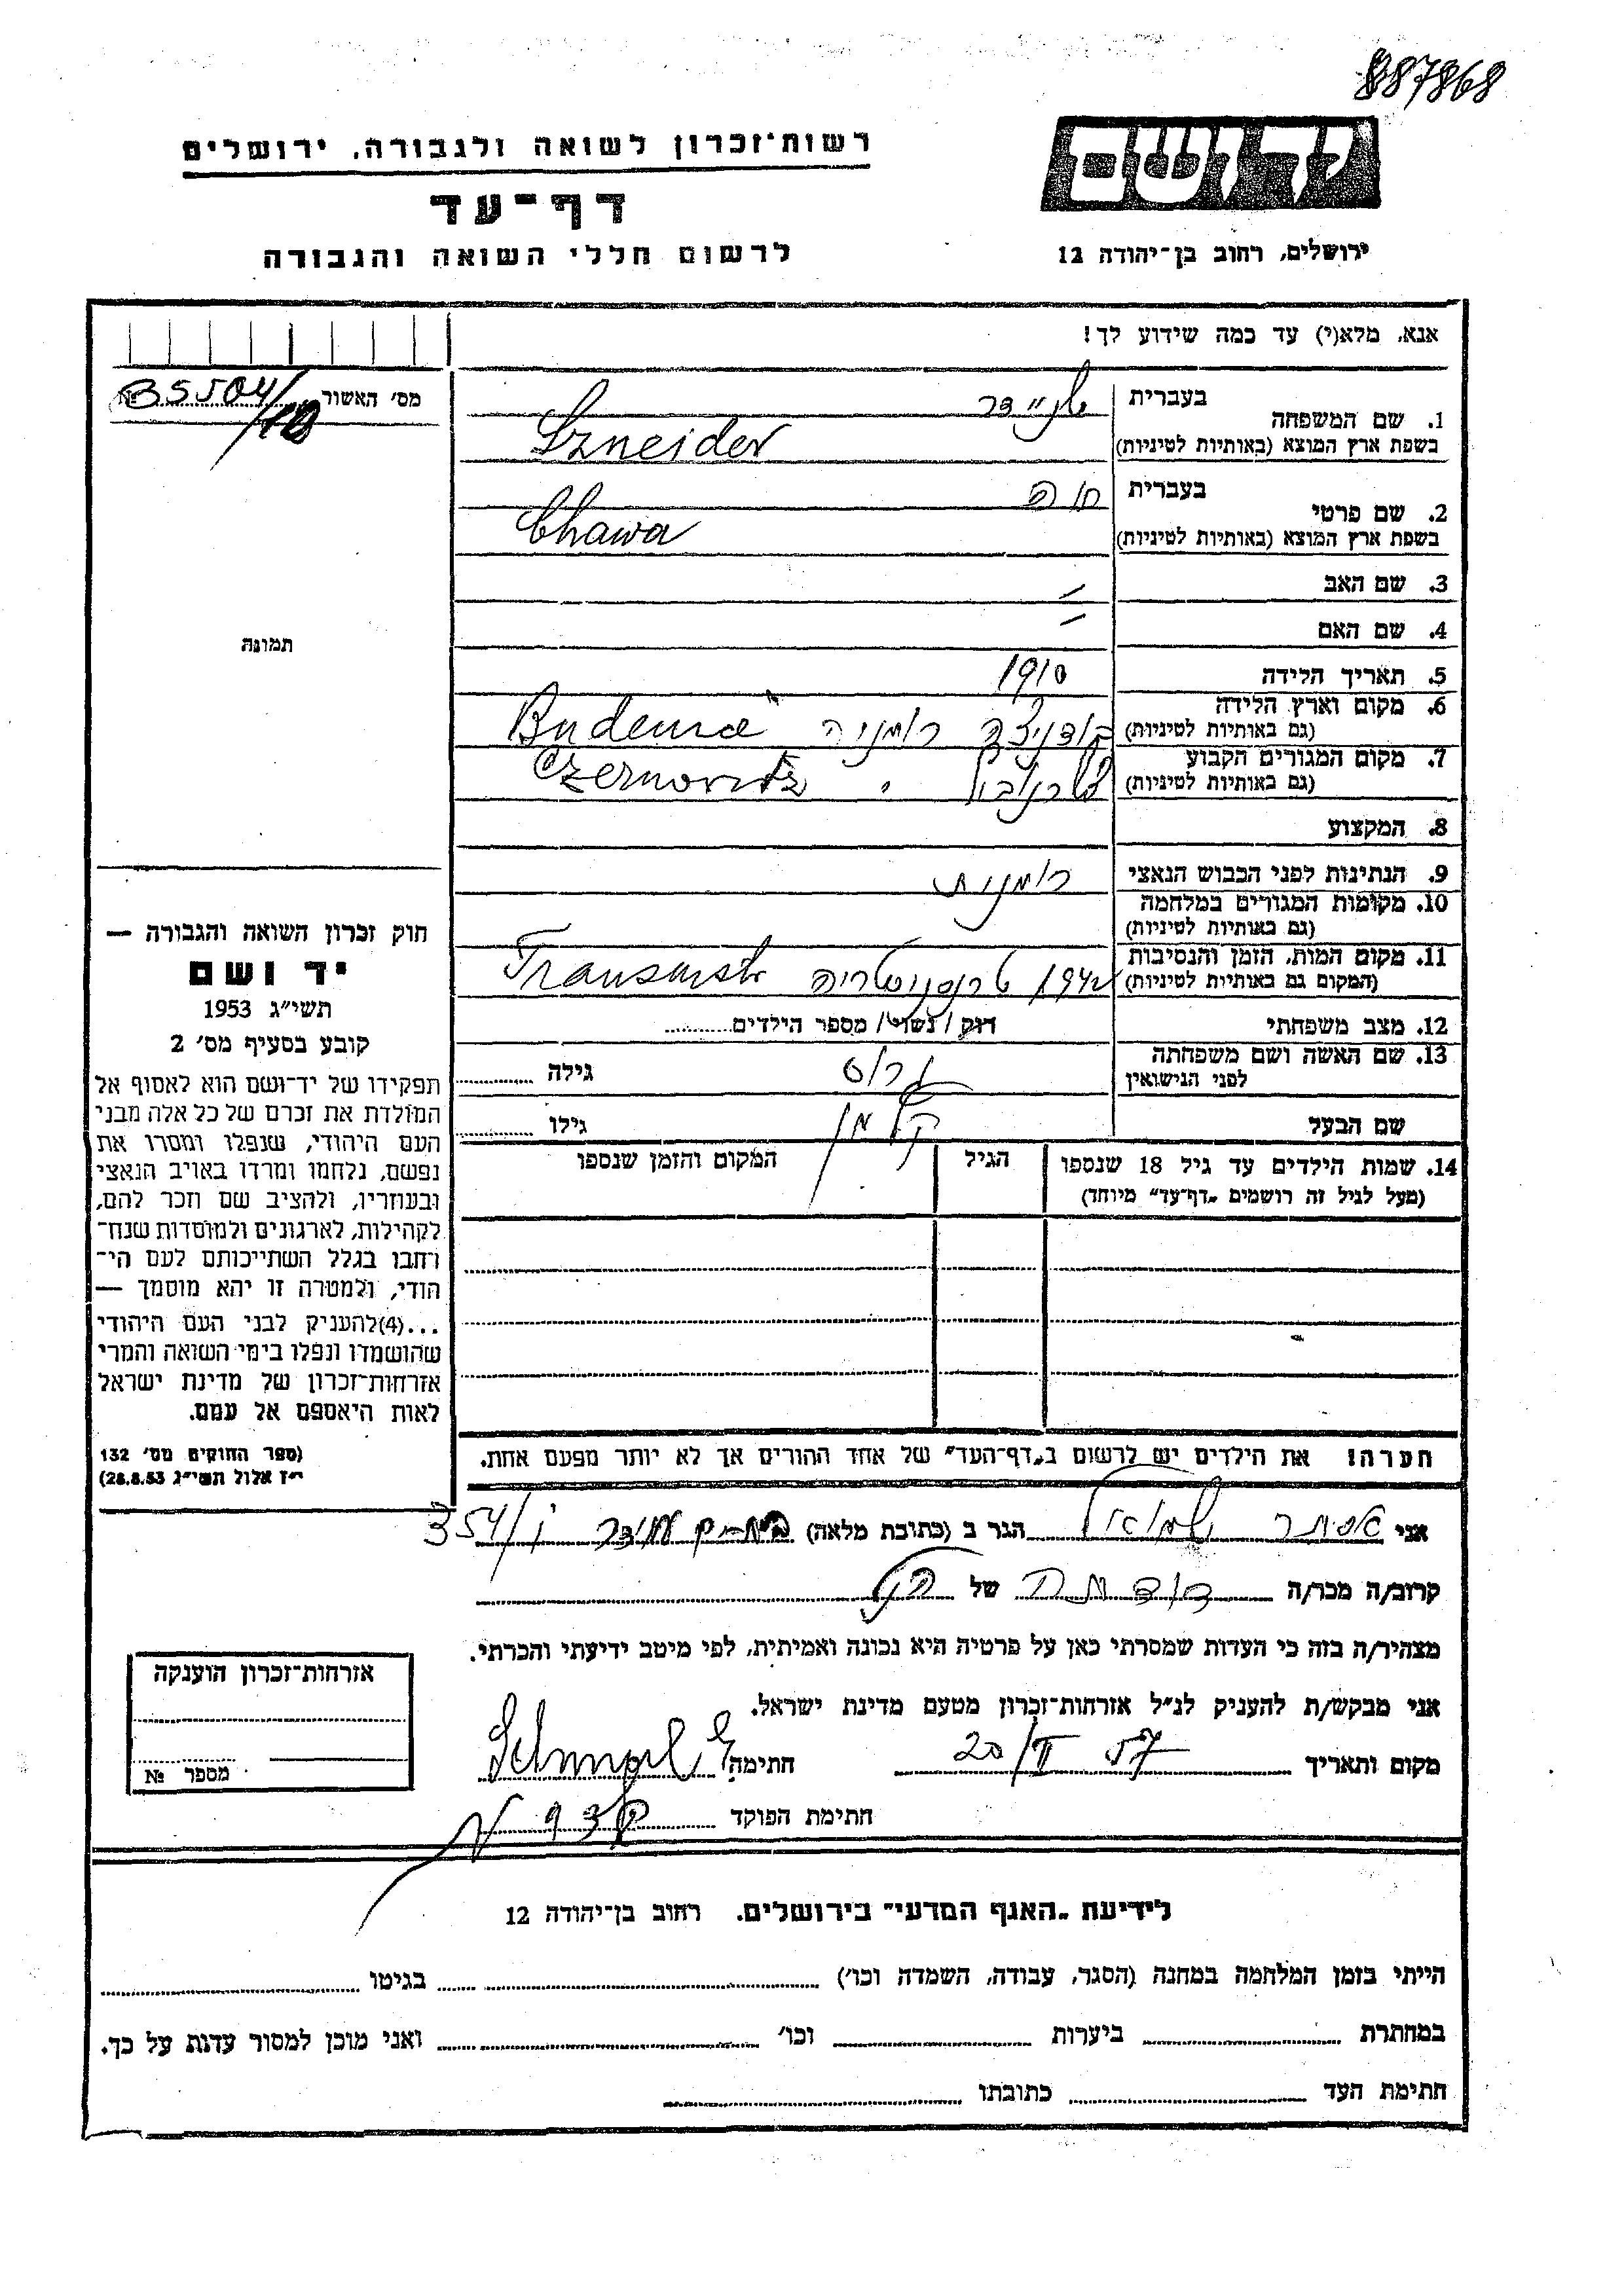 887868
רשות־זכרון לשואה ולגבורה, ירושלים
דף־עד
לרשום חללי השואה והגבורה
יד ושם
ירושלים, רחוב בן־יהודה 12
אנא, מלא(י) עד כמה שידוע לך!
מס׳ האשור №
תמונה
1. שם המשפחה
בעברית שניידר
בשפת ארץ המוצא (באותיות לטיניות) Szneider
2. שם פרטי
בעברית חוה
בשפת ארץ המוצא (באותיות לטיניות) Chawa
3. שם האב –
4. שם האם –
5. תאריך הלידה 1910
6. מקום וארץ הלידה
(גם באותיות לטיניות) רומניה
7. מקום המגורים הקבוע
(גם באותיות לטיניות) Czernovitz
8. המקצוע
9. הנתינות לפני הכבוש הנאצי רומנית
10. מקומות המגורים במלחמה
(גם באותיות לטיניות)
11. מקום המות, הזמן והנסיבות
(המקום גם באותיות לטיניות) 1942 טרנסניסטריה Transnistr
12. מצב משפחתי רוק / נשוי / מספר הילדים
13. שם האשה ושם משפחתה
לפני הנישואין גילה
שם הבעל קלמן גילו
14. שמות הילדים עד גיל 18 שנספו
(מעל לגיל זה רושמים „דף־עד״ מיוחד)
הגיל
המקום והזמן שנספו
הערה! את הילדים יש לרשום ב„דף־העד״ של אחד ההורים אך לא יותר מפעם אחת.
חוק זכרון השואה והגבורה —
יד ושם
תשי״ג 1953
קובע בסעיף מס׳ 2
תפקידו של יד־ושם הוא לאסוף אל
המולדת את זכרם של כל אלה מבני
העם היהודי, שנפלו ומסרו את
נפשם, נלחמו ומרדו באויב הנאצי
ובעוזריו, ולהציב שם וזכר להם,
לקהילות, לארגונים ולמוסדות שנח־
רבו בגלל השתייכותם לעם הי־
הודי, ולמטרה זו יהא מוסמך —
...(4)להעניק לבני העם היהודי
שהושמדו ונפלו בימי השואה והמרי
אזרחות־זכרון של מדינת ישראל
לאות היאספם אל עמם.
(ספר החוקים מס׳ 132
י״ז אלול תשי״ג 28.8.53)
אני אסתר שמואל הגר ב (כתובת מלאה) 354/
קרוב/ה מכר/ה דודתה של הנ״ל
מצהיר/ה בזה כי העדות שמסרתי כאן על פרטיה היא נכונה ואמיתית, לפי מיטב ידיעתי והכרתי.
אני מבקש/ת להעניק לנ״ל אזרחות־זכרון מטעם מדינת ישראל.
מקום ותאריך 20/II 57 חתימה
חתימת הפוקד
אזרחות־זכרון הוענקה
מספר №
לידיעת „האגף המדעי״ בירושלים, רחוב בן־יהודה 12
הייתי בזמן המלחמה במחנה (הסגר, עבודה, השמדה וכו׳) בגיטו
במחתרת ביערות וכו׳ ואני מוכן למסור עדות על כך.
חתימת העד כתובתו